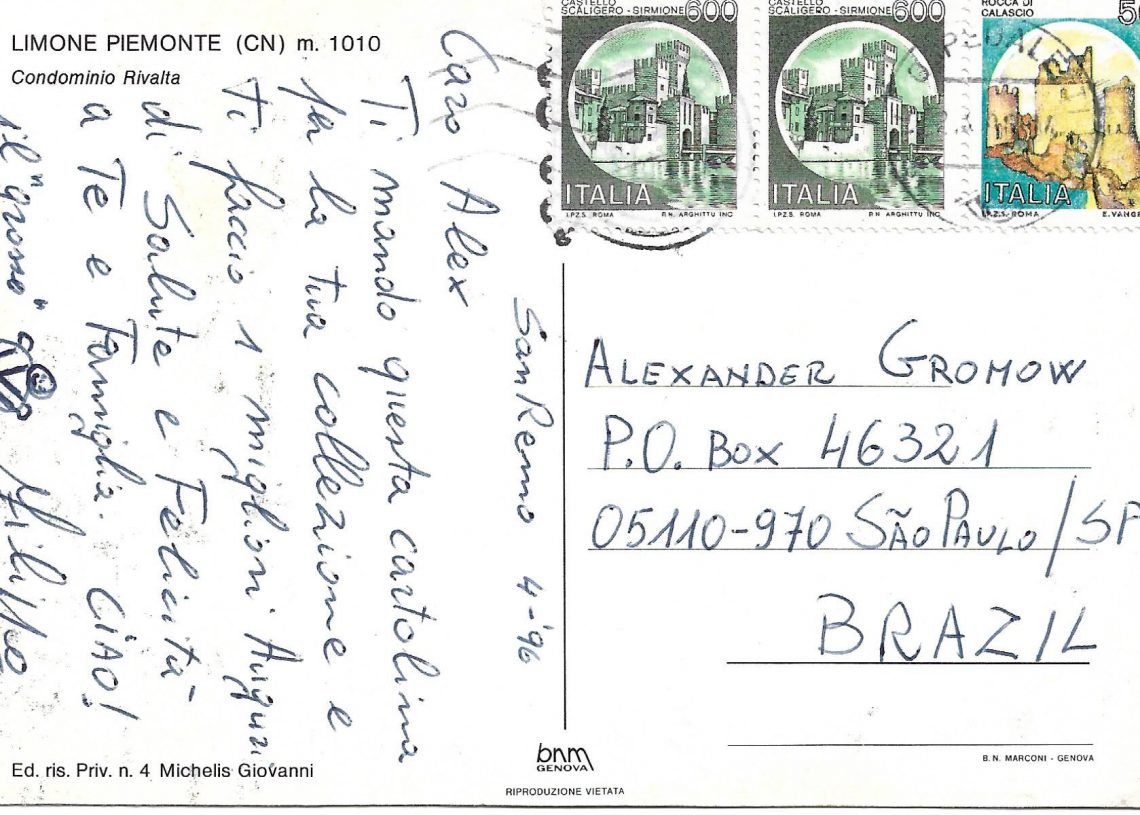 LIMONE PIEMONTE (CN) m. 1010
Condominio Rivalta
San Remo 4-'96
Caro Alex
Ti mando questa cartolina
per la tua collezione e
ti faccio i migliori Auguri
di Salute e Felicità
a Te e Famiglia. CiAO!
il "grosso"
Filippo
Ed. ris. Priv. n. 4 Michelis Giovanni
bnm
GENOVA
RIPRODUZIONE VIETATA
CASTELLO
SCALIGERO - SIRMIONE 600
ITALIA
I.P.Z.S. ROMA P.N. ARGHITTU INC.
CASTELLO
SCALIGERO - SIRMIONE 600
ITALIA
I.P.Z.S. ROMA P.N. ARGHITTU INC.
ROCCA DI
CALASCIO
ITALIA
I.P.Z.S. ROMA
ALEXANDER GROMOW
P.O. BOX 46321
05110-970 SÃO PAULO/SP
BRAZIL
B.N. MARCONI - GENOVA